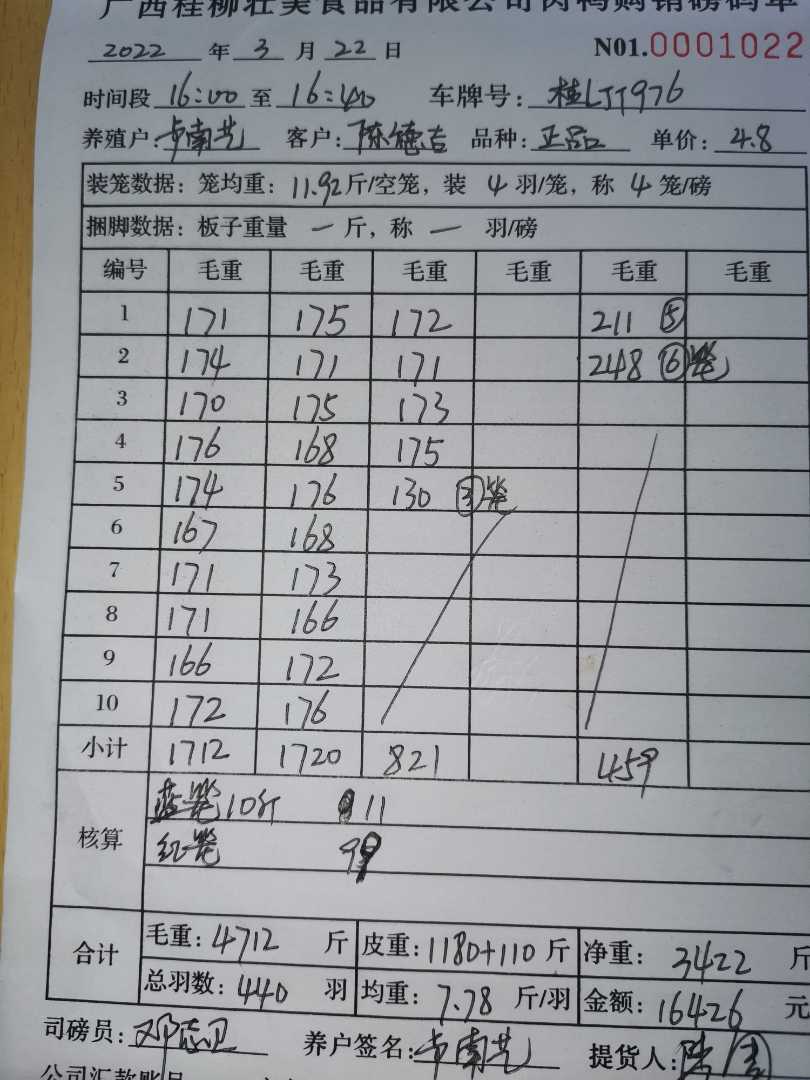 广西桂柳壮美食品有限公司肉鸭购销磅码单
2022 年 3 月 22 日 N01.0001022
时间段 16:00 至 16:40 车牌号: 桂LJJ976
养殖户: 卢南艺 客户: 陈德吉 品种: 正品 单价: 4.8
装笼数据: 笼均重: 11.92斤/空笼, 装 4 羽/笼, 称 4 笼/磅
捆脚数据: 板子重量 一 斤, 称 一 羽/磅
编号 毛重 毛重 毛重 毛重 毛重 毛重
1 171 175 172 211 ⑤
2 174 171 171 248 ⑥笼
3 170 175 173
4 176 168 175
5 174 176 130 ③笼
6 167 168
7 171 173
8 171 166
9 166 172
10 172 176
小计 1712 1720 821 459
核算
蓝笼10斤 11
红笼 99
合计
毛重: 4712 斤 皮重: 1180+110 斤 净重: 3422 斤
总羽数: 440 羽 均重: 7.78 斤/羽 金额: 16426 元
司磅员: 邓志卫 养户签名: 卢南艺 提货人:
公司汇款账号